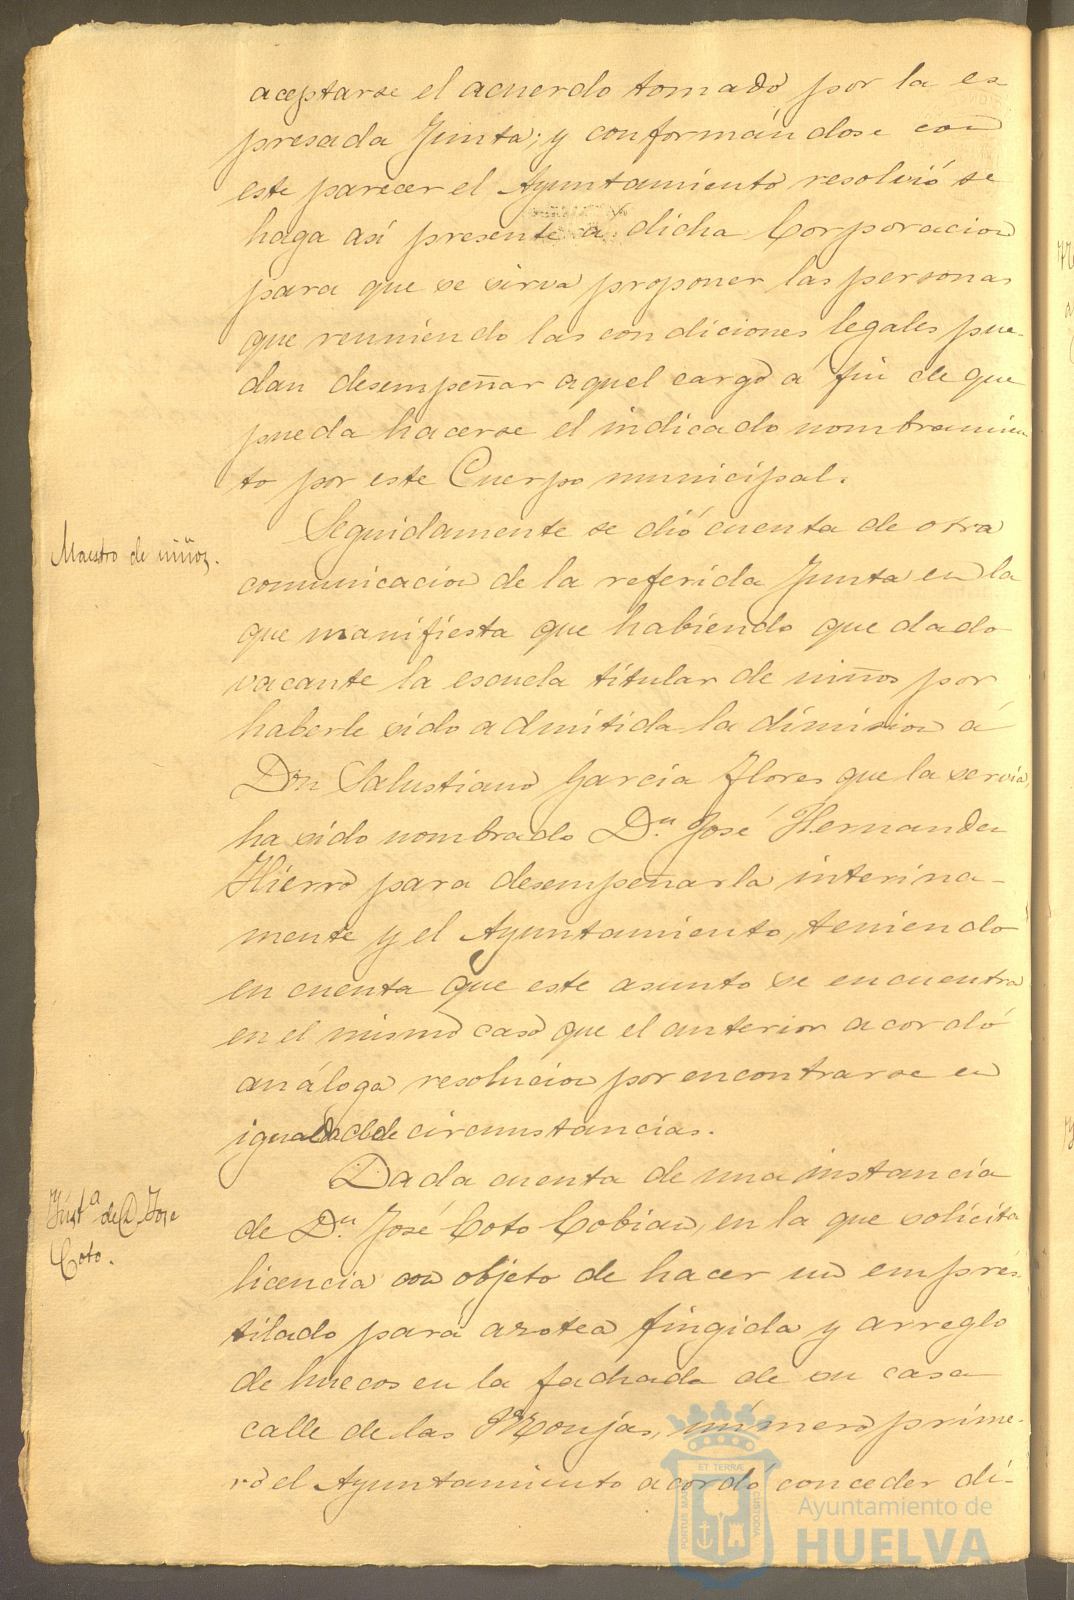 aceptarse el acuerdo tomado por la es
presada Junta; y conformándose con
este parecer el Ayuntamiento resolvió se
haga así presente a dicha Corporacion
para que se sirva proponer las personas
que reuniendo las condiciones legales pue-
dan desempeñar aquel cargo á fin de que
pueda hacerse el indicado nombramien
to por este Cuerpo municipal.
Maestro de niños.
Seguidamente se dió cuenta de otra
comunicacion de la referida Junta en la
que manifiesta que habiendo quedado
vacante la escuela titular de niños por
haberle sido admitida la dimision á
Don Salustiano Garcia Flores que la servia,
ha sido nombrado Dn. José Hernandez
Hierro para desempeñarla interina-
mente y el Ayuntamiento, teniendo
en cuenta que este asunto se encuentra
en el mismo caso que el anterior acordó
análoga resolucion por encontrarse en
igualdad de circunstancias.
Inst.a de D. Jose
Coto.
Dada cuenta de una instancia
de Dn. José Coto Cobian, en la que solicita
licencia con objeto de hacer un empres-
tilado para azotea fingida y arreglo
de huecos en la fachada de su casa
calle de las Monjas, número prime-
ro el Ayuntamiento acordó conceder di-
ET TERRÆ
PORTUS MARIS
CUSTODIA
Ayuntamiento de
HUELVA